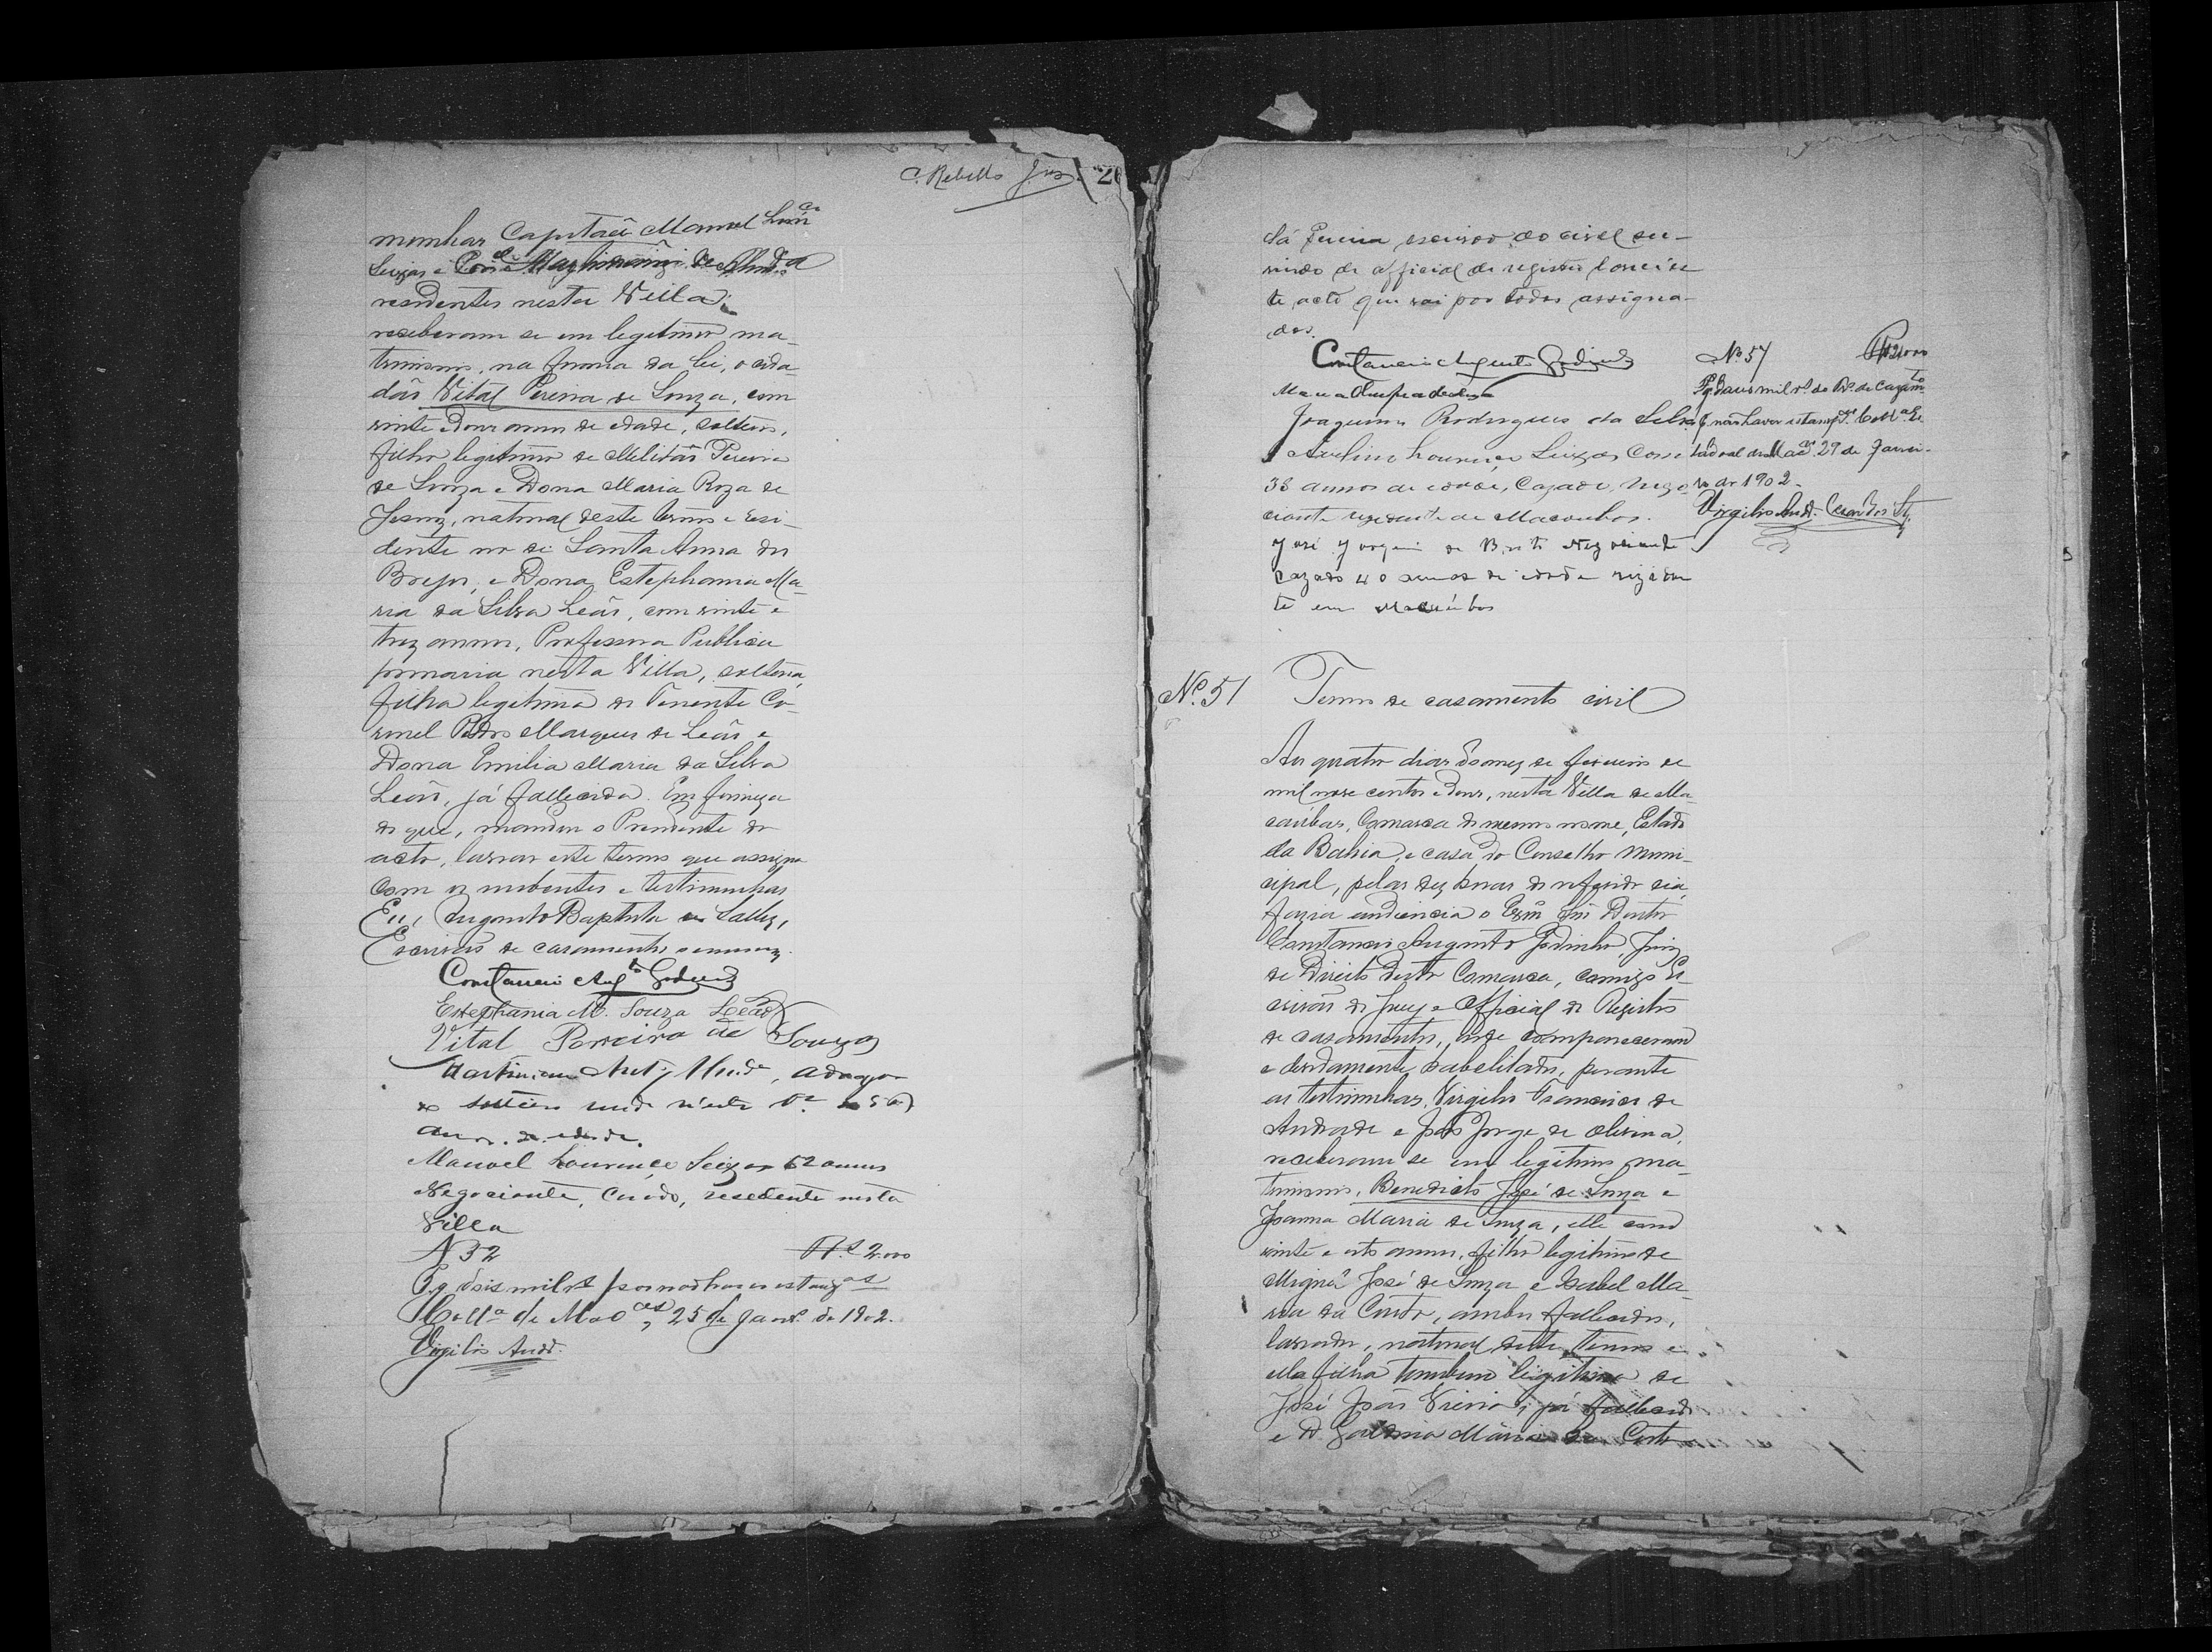 C. Rebello
munhas Capitão Manoel Lour.ço
Seixas e
residentes nesta Villa;
receberam se em legitimo ma-
trimonio, na forma da lei, o cida-
dão Vital Pereira de Souza, com
vinte e dous annos de edade, solteiro,
filho legitimo de Militão Pereira
de Souza e Dona Maria Roza de
Jesus, natural deste termo e resi-
dente no de Santa Anna dos
Brejos, e Dona Estephania Ma-
ria da Silva Leão, com vinte e
trez annos, Professora Publica
primaria nesta Villa, solteira,
filha legitima do Tenente Co-
ronel Pedro Marques de Leão e
Dona Emilia Maria da Silva
Leão, já fallecida. Em firmeza
do que, mandou o Presidente do
acto, lavrar este termo que assigna
com os nubentes e testimunhas
Eu, Augusto Baptista de Salles,
Escrivão de casamentos o escrevy.
Constancio Aug.to Godinho
Estephania M. Souza Leão
Vital Pereira de Souza
annos de edade.
Manoel Lourenço Seixas 52 annos
Negociante, Casado, residente nesta
Villa
N 32 R.s 2.000
Pg. dois mil r.s por não haver estamp.as
Coll.a de Mac.as, 25 de Janr.o de 1902.
Virgilio Andr.
Sá Pereira escrivão do civel ser-
vindo de official de registro lavrei es-
te acto que vai por todos assigna-
dos.
Constancio Augusto Godinho
Joaquim Rodrigues da Silva
Avelino Lourenço Seixas Com
38 annos de edade, Cazado, nego-
ciante rezidente de Macaubas.
José Jorge de Brito Negociante
cazado 40 annos de idade reziden
te em Macaúbas
N.o 57 R.s 2.000
Pg. dous mil r.s de de cazam.to
p. não haver estamp.as Coll.a Es-
tadoal de Mac.as 29 de Janei-
ro de 1902.
Virgilio Andr.
N.o 51 Termo de casamento civil
Aos quatro dias do mez de fevereiro de
mil nove centos e dous, nesta Villa de Ma-
caúbas, Comarca do mesmo nome, Estado
da Bahia, e casa do Conselho Muni-
cipal, pelas dez horas do referido dia,
fazia audiencia o Exm.o Snr. Doutor
Constancio Augusto Godinho, Juiz
de Direito desta Comarca, comigo Es-
crivão do Jury e Official do Registro
de casamentos, ahi compareceram
e devidamente habelitados, perante
as testimunhas, Virgilio Francisco de
Andrade e João Jorge de Oliveira,
receberam se em legitimo ma-
trimonio, Benedicto José de Souza e
Joanna Maria de Souza, elle com
vinte e oito annos, filho legitimo de
Miguel José de Souza e Isabel Ma-
ria da Costa, ambos fallecidos,
lavrador, natural deste termo e
ella filha tambem legitima de
José João Vieira, já fallecido
e D. Maria da Costa